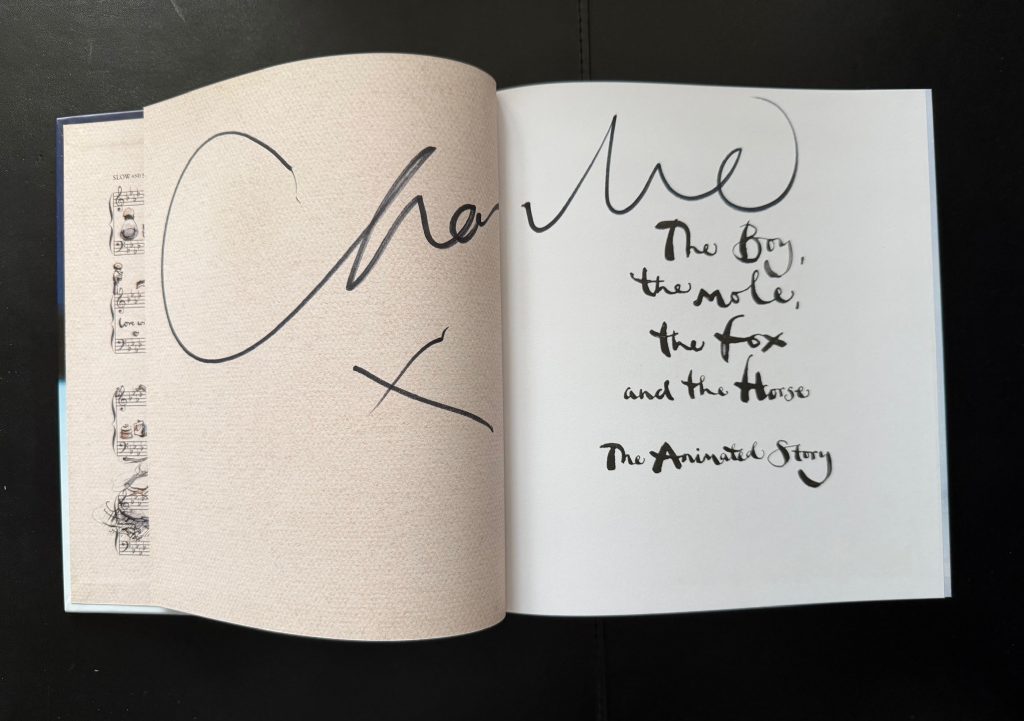 SLOW AND
Love is
Charlie
X
The Boy,
the mole,
the fox
and the Horse
The Animated Story